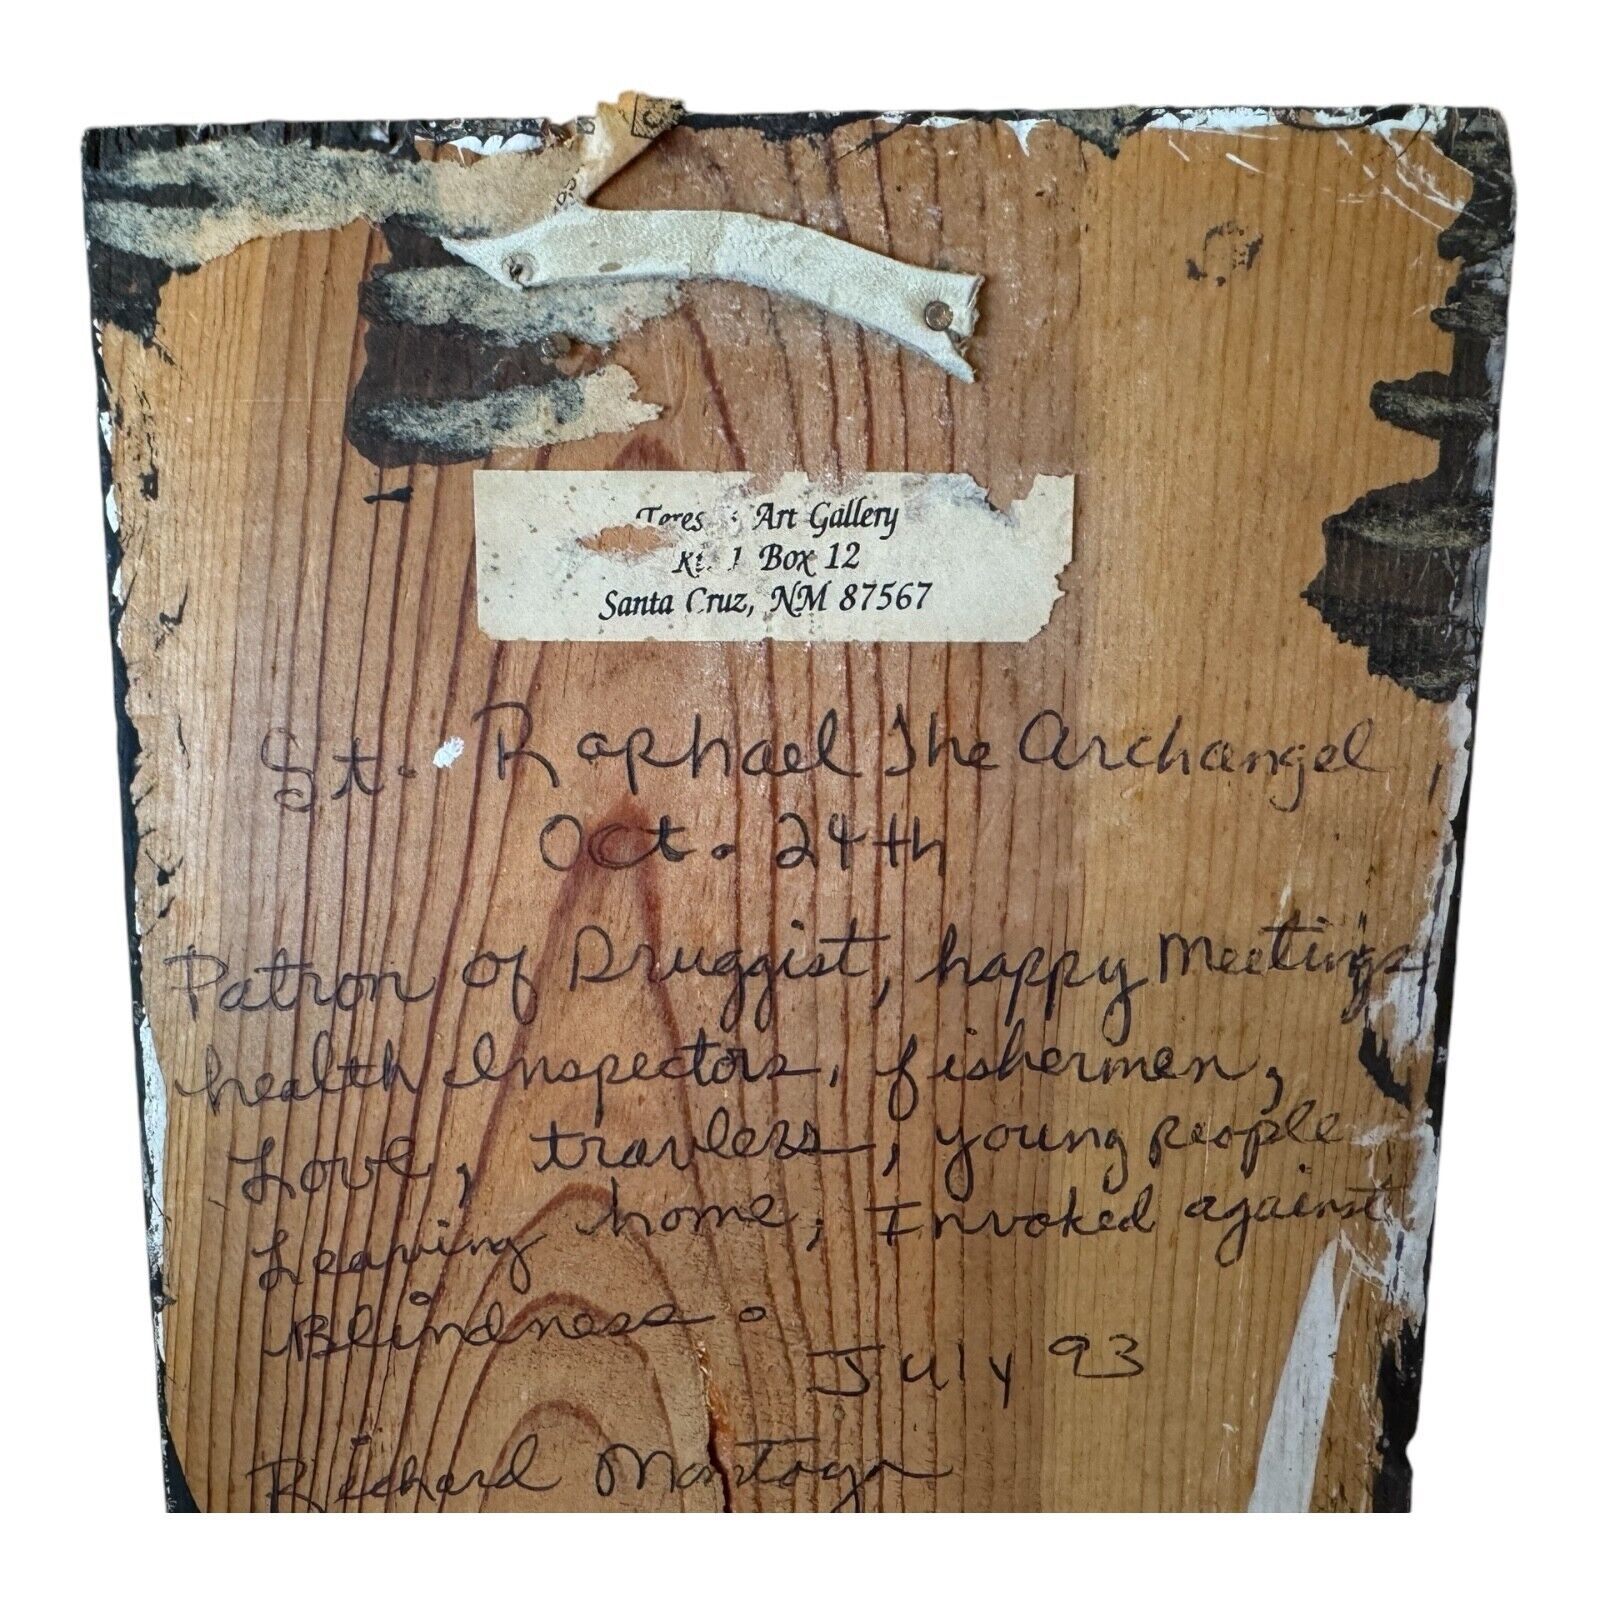 Art Gallery
Box 12
Santa Cruz, NM 87567
St. Raphael The Archangel,
Oct. 24th
Patron of Druggist, happy Meetings
health Inspectors, fishermen,
Love, travlers, young people
Leaving home, Invoked against
Blindness.
July 93
Richard Montoya